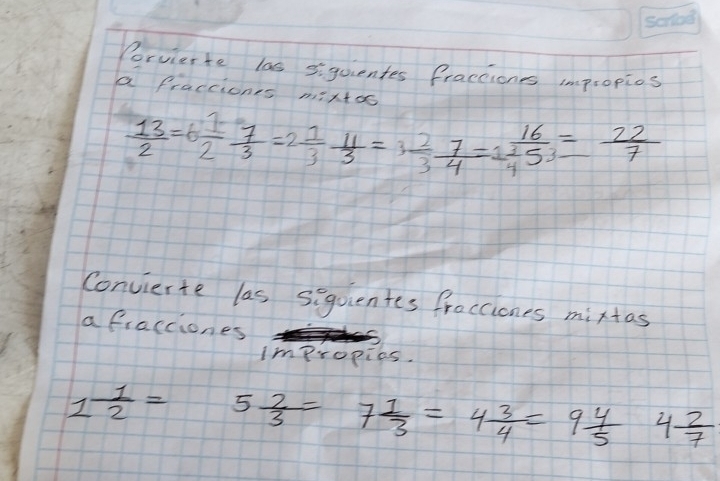 Scribe
Convierte las siguientes fracciones impropios
a fracciones mixtos
13/2 = 6 1/2 7/3 = 2 1/3 11/3 = 3 2/3 7/4 = 1 3/4 16/5 = 3 22/7
Convierte las siguientes fracciones mixtas
a fracciones
impropios.
1 1/2 = 5 2/3 = 7 1/3 = 4 3/4 = 9 4/5 4 2/7